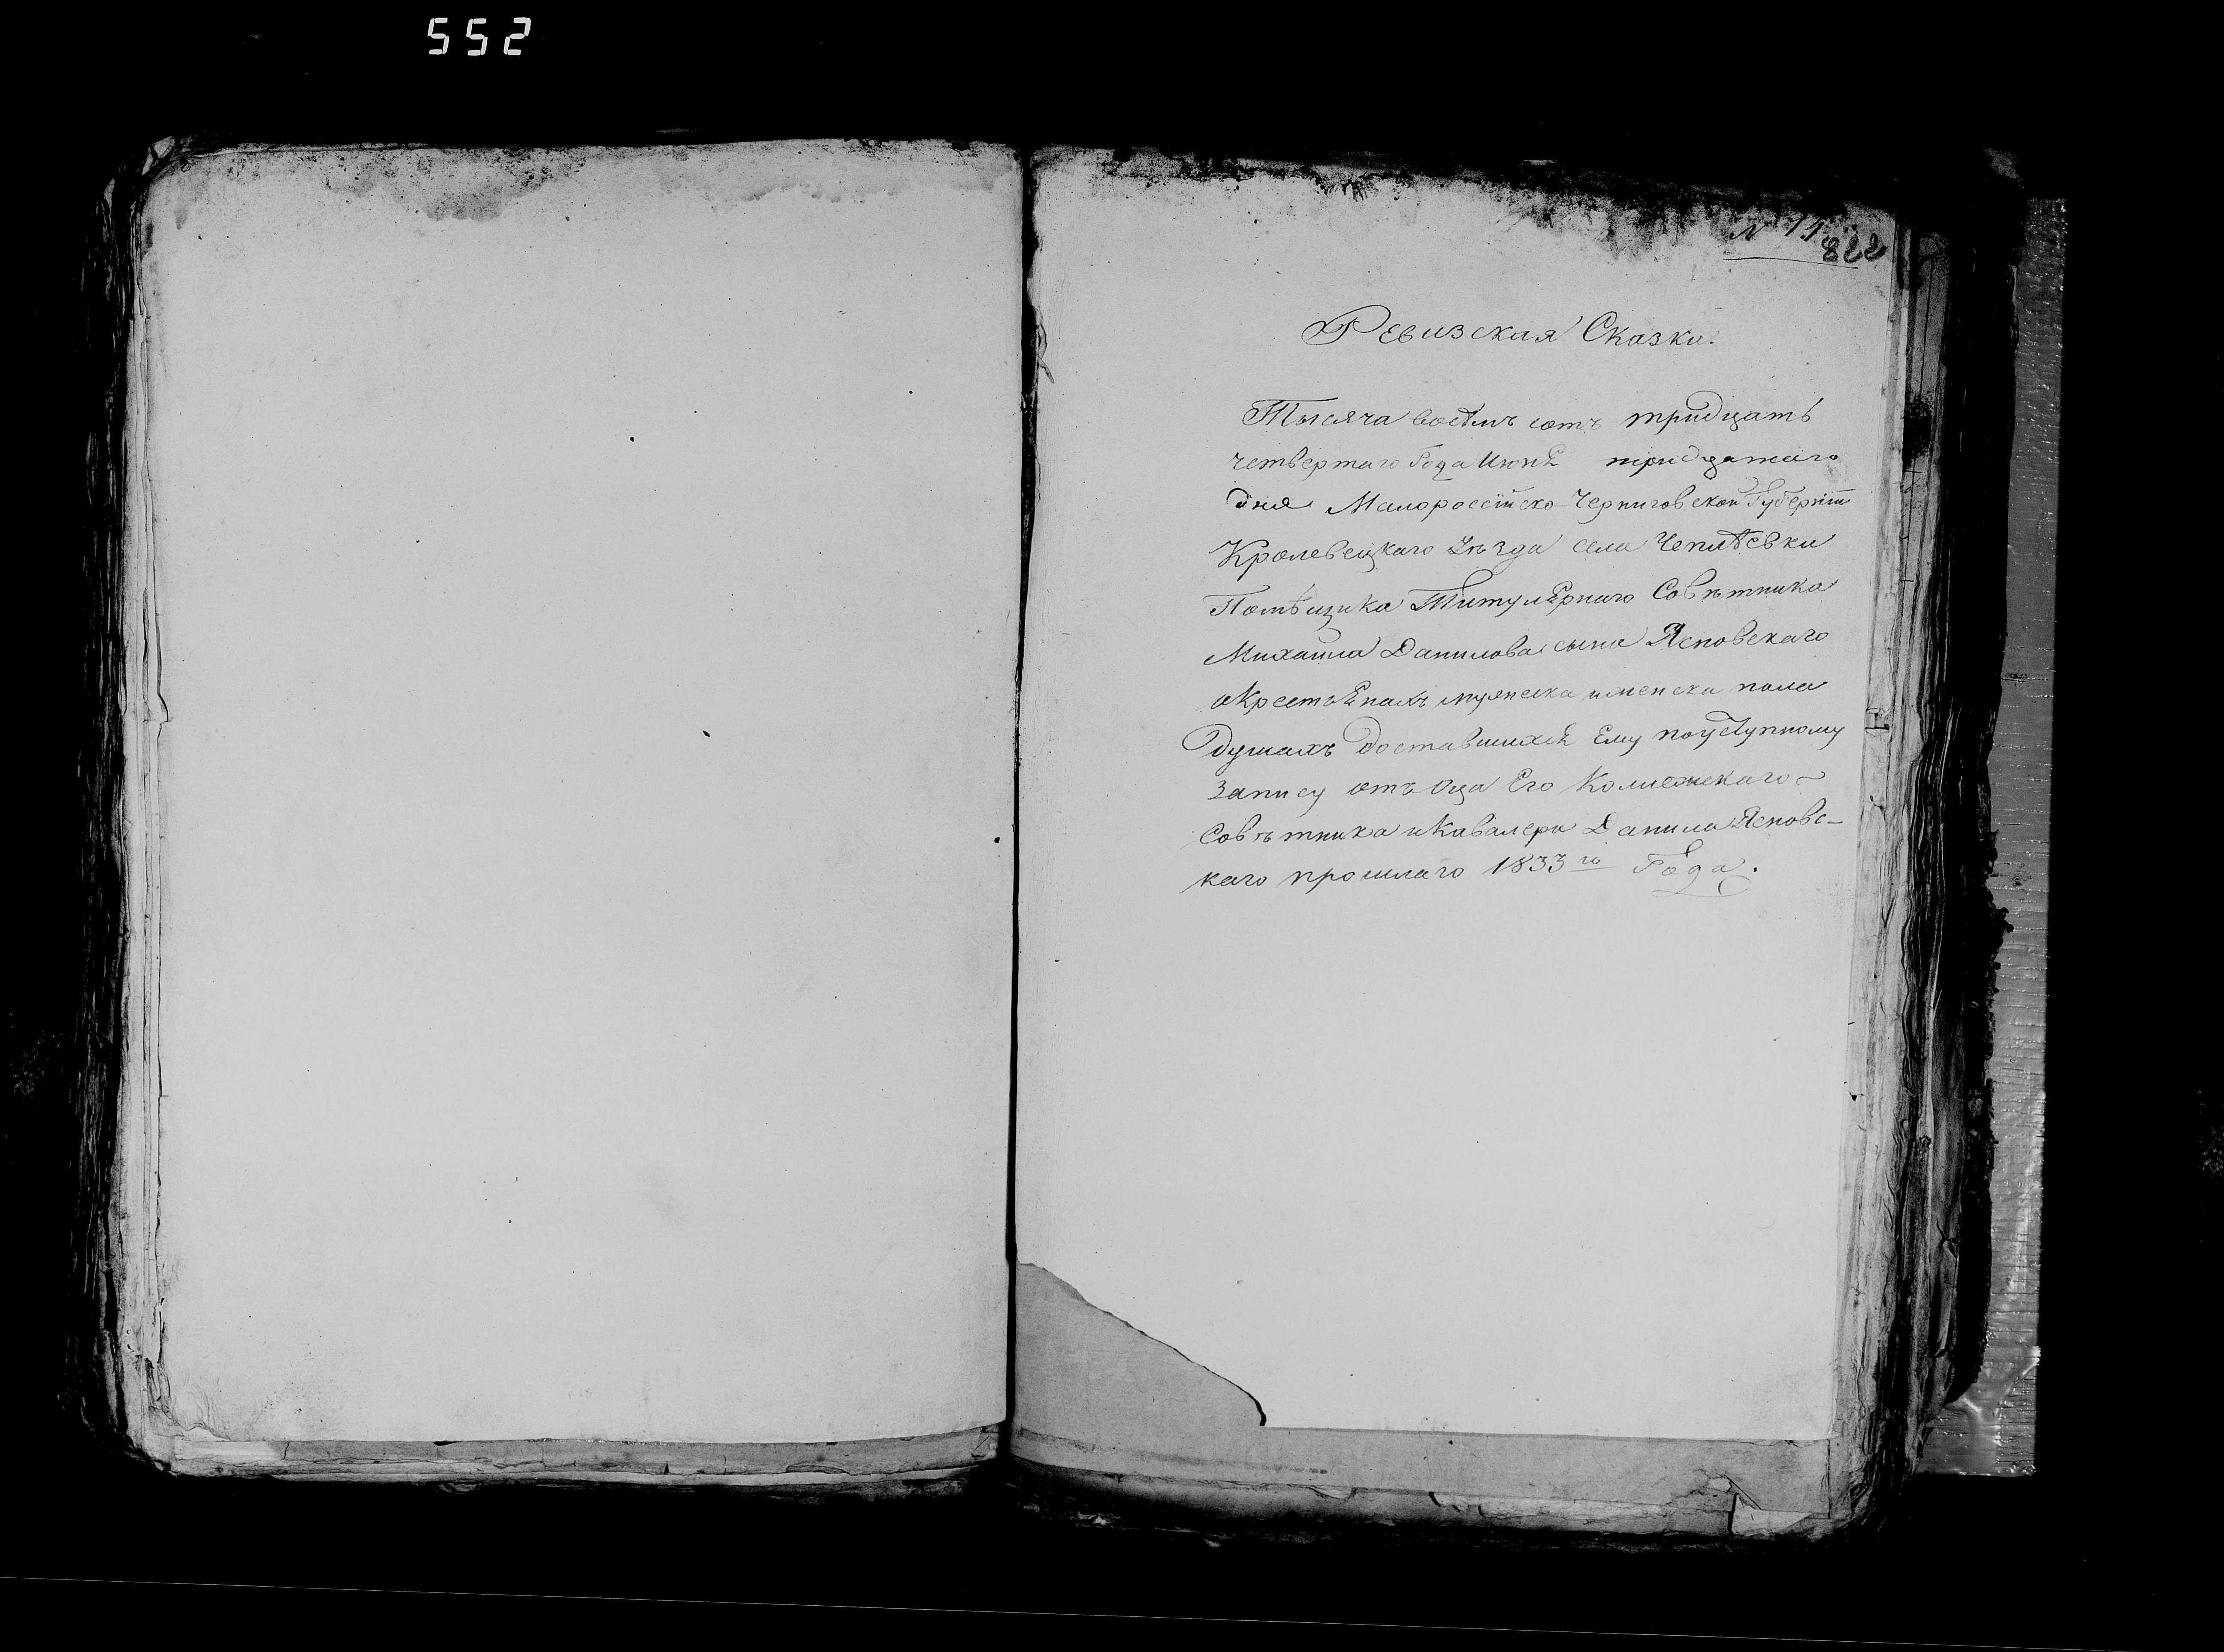 552
N 11
822
Ревизская Сказка.
Тысяча восемъ сотъ тридцать
четвертаго Года Июня тридцатаго
дня Малороссійско-Черниговской Губерніи
Кролевецкаго уѣзда села Чеплѣевки
Помѣщика Титулярнаго Совѣтника
Михайла Данилова сына Ясновскаго
о Крестьянахъ мужеска и женска пола
Душахъ доставшихся Ему поуступному
Запису отъ Оца Его Коллежскаго
Совѣтника и Кавалера Данила Ясновс-
каго прошлаго 1833го Года.